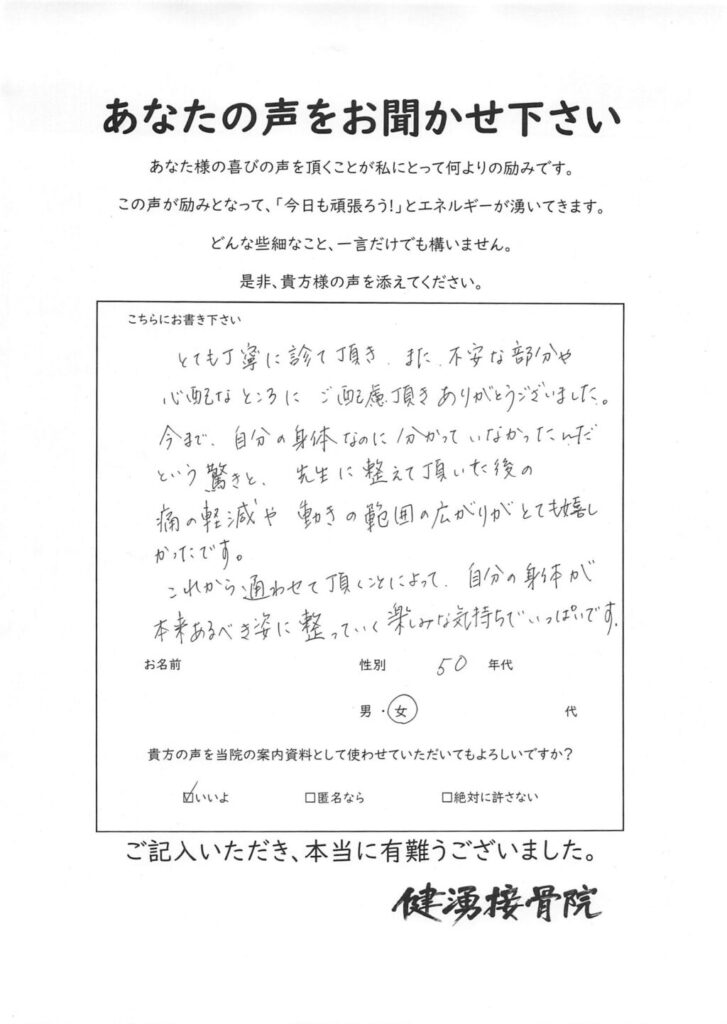 あなたの声をお聞かせ下さい
あなた様の喜びの声を頂くことが私にとって何よりの励みです。
この声が励みとなって、「今日も頑張ろう!」とエネルギーが湧いてきます。
どんな些細なこと、一言だけでも構いません。
是非、貴方様の声を添えてください。
こちらにお書き下さい
とても丁寧に診て頂き、また、不安な部分や
心配なところに ご配慮頂きありがとうございました。
今まで、自分の身体なのに分かっていなかったんだ
という驚きと、先生に整えて頂いた後の
痛の軽減や 動きの範囲の広がりがとても嬉し
かったです。
これから通わせて頂くことによって、自分の身体が
本来あるべき姿に整っていく楽しみな気持ちでいっぱいです。
お名前 性別 50 年代
男・女 代
貴方の声を当院の案内資料として使わせていただいてもよろしいですか?
☑いいよ □匿名なら □絶対に許さない
ご記入いただき、本当に有難うございました。
健湧接骨院